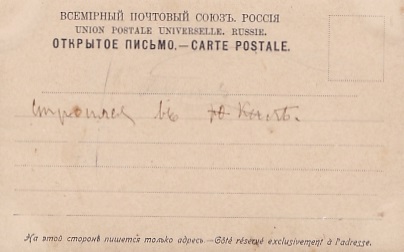 ВСЕМІРНЫЙ ПОЧТОВЫЙ СОЮЗЪ. РОССІЯ
UNION POSTALE UNIVERSELLE. RUSSIE.
ОТКРЫТОЕ ПИСЬМО.—CARTE POSTALE.
въ
На этой сторонѣ пишется только адресъ.—Côté réservé exclusivement à l'adresse.